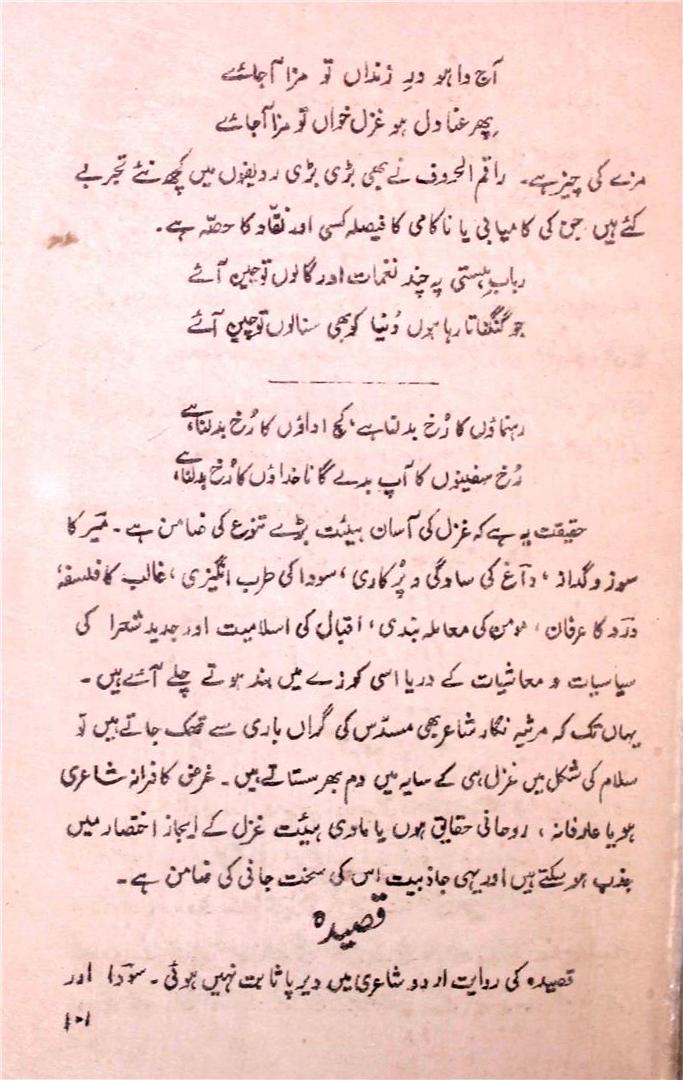 آج وا ہو درِ زنداں تو مزا آجائے
پھر عنادل ہو غزل خواں تو مزا آجائے
مزے کی چیز ہے۔ راقم الحروف نے بھی بڑی بڑی ردیفوں میں کچھ نئے تجربے
کئے ہیں جن کی کامیابی یا ناکامی کا فیصلہ کسی اور نقّاد کا حصّہ ہے۔
ربابِ ہستی پہ چند نغمات اور گالوں تو چین آئے
جو گنگناتا رہا ہوں دُنیا کو بھی سنالوں تو چین آئے
رہنماؤں کا رُخ بدلتا ہے، کج اداؤں کا رُخ بدلتا ہے
رُخ سفینوں کا آپ بدلے گا ناخداؤں کا رُخ بدلتا ہے
حقیقت یہ ہے کہ غزل کی آسان ہیئت بڑے تنوع کی ضامن ہے۔ میر کا
سوز و گداز، داغ کی سادگی و پُرکاری، سودا کی طرب انگیزی، غالب کا فلسفہ،
درد کا عرفان، مومن کی معاملہ بندی، اقبال کی اسلامیت اور جدید شعرا کی
سیاسیات و معاشیات کے دریا اسی کوزے میں بند ہوتے چلے آئے ہیں۔
یہاں تک کہ مرثیہ نگار شاعر بھی مسدّس کی گراں باری سے تھک جاتے ہیں تو
سلام کی شکل میں غزل ہی کے سایہ میں دم بھر ستاتے ہیں۔ غرض کافرانہ شاعری
ہو یا عارفانہ، روحانی حقایق ہوں یا مادی ہیئت غزل کے ایجاز اختصار میں
جذب ہو سکتے ہیں اور یہی جاذبیت اس کی سخت جانی کی ضامن ہے۔
قصیدہ
قصیدہ کی روایت اردو شاعری میں دیرپا ثابت نہیں ہوئی۔ سودا اور
۱۰۱